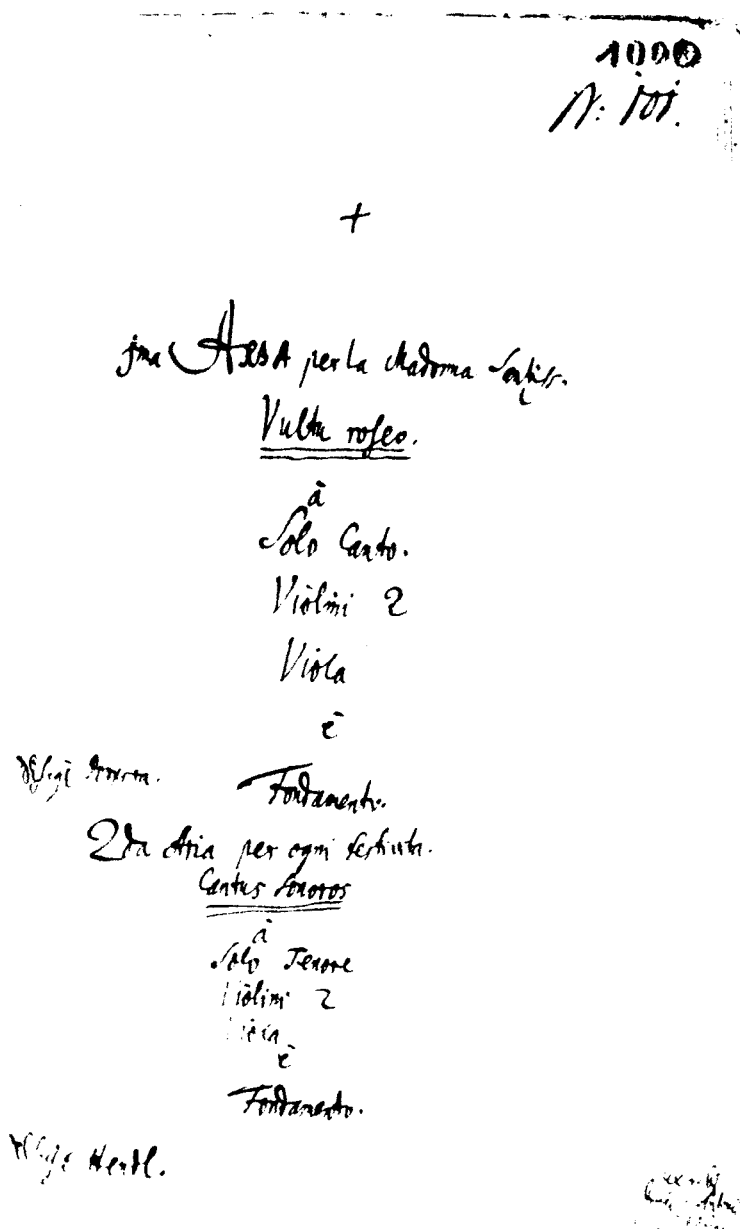 N: 101.
+
jma ARIA per la Madonna Santiss.
Vultu roseo.
à
Solo Canto.
Violini 2
Viola
è
Fondamento.
2da Aria per ogni festivita.
Cantus sonoros
à
Solo Tenore
Violini 2
Viola
è
Fondamento.